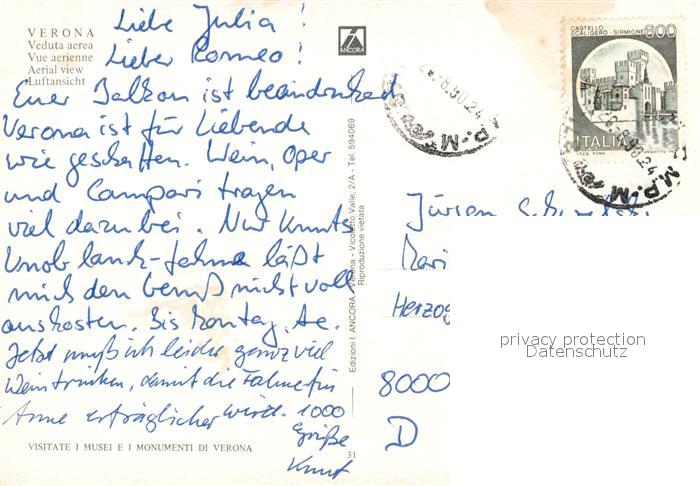 VERONA
Veduta aerea
Vue aerienne
Aerial view
Luftansicht
ANCORA
Liebe Julia!
Lieber Romeo!
Euer Balkon ist beeindruckend
Verona ist für Liebende
wie geschaffen. Wein, Oper
und Campari tragen
viel dazu bei. Nur Knuts
Knoblauch-Fahne läßt
mich den Genuß nicht voll
auskosten. Bis Montag,
Jetzt muß ich leider ganz viel
Wein trinken, damit die Fahne für
Anne erträglicher wird. 1000
Grüße
Knut
VISITATE I MUSEI E I MONUMENTI DI VERONA
31
Edizioni I. ANCORA - Verona - Vicoletto Valle, 2/A - Tel. 594069
Riproduzione vietata
CASTELLO
SCALIGERO - SIRMIONE
600
ITALIA
28.8.90.24
P.M
28.8.90.24
M.P.M
Jürgen
Mari
Herzog
8000
D
privacy protection
Datenschutz